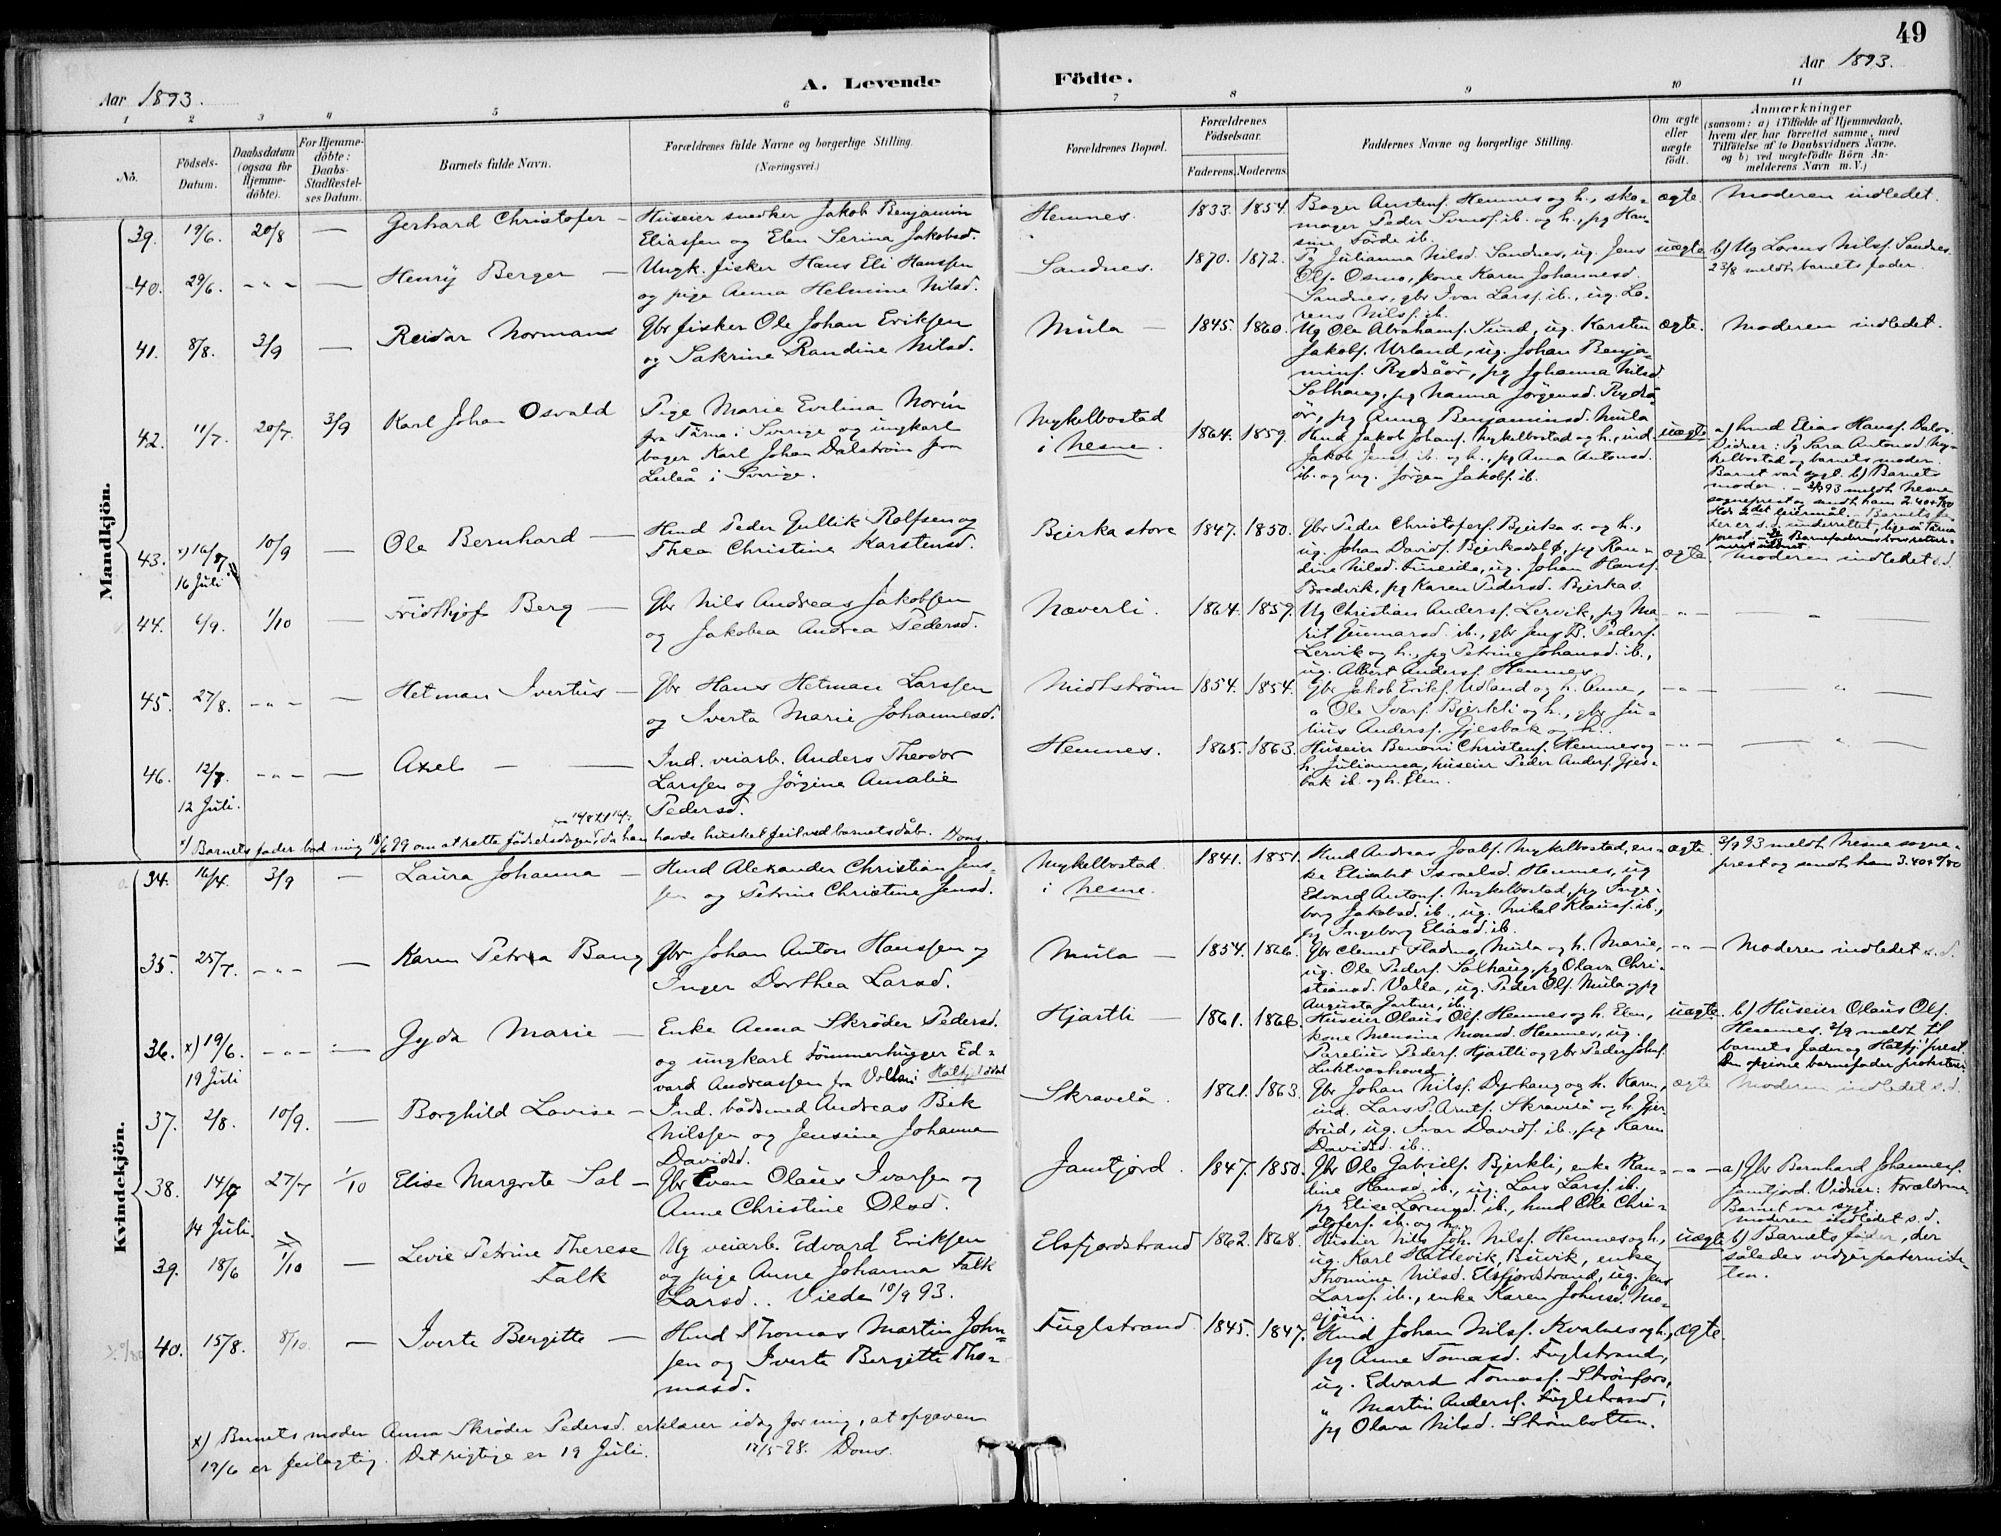 49
Aar 1893.
A. Levende Födte.
Aar 1893.
1 2 3 4 5 6 7 8 9 10 11
No.
Födsels-Datum.
Daabsdatum (ogsaa for Hjemme-döbte).
For Hjemme-döbte: Daabs-Stadfæstel-ses Datum.
Barnets fulde Navn.
Forældrenes fulde Navne og borgerlige Stilling.
(Næringsvei.)
Forældrenes Bopæl.
Forældrenes Födselsaar.
Faderens. Moderens.
Faddernes Navne og borgerlige Stilling.
Om ægte eller uægte födt.
Anmærkninger
(saasom: a) i Tilfælde af Hjemmedaab,
hvem der har forrettet samme, med
Tilföielse af to Daabsvidners Navne.
og b) ved uægtefödte Börn An-
melderens Navn m. V.)
Mandkjön.
39. 19/6. 20/8 — Gerhard Christofer —
Huseier snedker Jakob Benjamin
Eliassen og Elen Serina Jakobsd.
Hemnes. 1833. 1854.
Bager Austenf. Hemnes og h., sko-
mager Peder Svensf. ib. og h., pg Han-
sine Förde ib.
ægte Moderen indledet.
40. 29/6. - „ - — Henry Berger —
Ungk. fisker Hans Eli Hanssen
og pige Anna Helmine Nilsd.
Sandnes. 1870. 1872.
Pg Julianna Nilsd. Sandnes, ug. Jens
Olsf. Osmo, kone Karen Johannesd.
Sandnes, gbr Ivar Larsf. ib., ug. Lo-
rens Nilsf. ib.
uægte b) Ug Lorens Nilsf. Sandnes.
23/8 meldt barnets fader
41. 8/8. 3/9 — Reidar Normann
Gbr fisker Ole Johan Eriksen
og Sakrine Randine Nilsd.
Mula — 1845. 1860.
Ug Ole Abrahamf. Sund, ug. Karsten
Jakobf. Urland, ug. Johan Benja-
minf. Rydsåör, pg Johanna Nilsd.
Solhaug, pg Nanna Jörgensd. Rydså-
ör, pg Anna Benjaminsd. Mula
ægte. Moderen indledet.
42. 11/7. 20/7. 3/9 Karl Johan Osvald
Pige Marie Evelina Norén
fra Tärna i Sverige og ungkarl
bager Karl Johan Dalström fra
Luleå i Sverige.
Nykelbostad
i Nesne. 1864. 1859.
Hmd Jakob Johanf. Nykelbostad og h., ind
Jakob Jensf. ib. og h., pg Anna Antonsd.
ib. og ug. Jörgen Jakobf. ib.
uægte a) hmd Elias Hansf. Dalos.
Vidner: Pg Sara Antonsd Ny-
kelbostad og barnets moder.
Barnet var sygt. b) Barnets
moder. — 3/9 93 meldt Nesne
sogneprest og sendt ham
43. x) 16/7 10/9 — Ole Bernhard —
16 Juli
Hmd Peder Gullik Rolfsen og
Thea Christine Karstensd.
Bjerka store 1847. 1850.
Gbr Peder Christoferf. Bjerka s. og h.,
ug. Johan Davidf. Bjerkadal ö., pg Ran-
dine Nilsd. Finneide, ug. Johan Hansf.
Bredvik, pg Karen Pedersd. Bjerka s.
ægte. Moderen indledet s.d.
44. 6/9. 1/10 — Fridthjof Berg —
Gbr Nils Andreas Jakobsen
og Jakobea Andrea Pedersd.
Næverli. 1864. 1859.
Ug Christian Andersf. Lervik, pg Ma-
rit Gunnarsd. ib., gbr Jens B. Pederf.
Lervik og h., pg Petrine Johansd. ib.,
ug. Albert Andersf. Hemnes
- „ - — „ —
45. 27/8. - „ - — Hetman Ivertus —
Gbr Hans Hetman Larssen
og Iverta Marie Johannesd.
Midtström 1854. 1854.
Gbr Jakob Erikf. Udland og h. Anne,
„ Ole Ivarf. Bjerkli og h., gbr Ju-
lius Andersf. Gjesbak og h.
— „ — — „ —
46. 12/7. - „ - — Axel — —
12 Juli.
Ind. veiarb. Anders Theodor
Larssen og Jörgine Amalie
Pedersd.
Hemnes. 1865. 1863.
Huseier Benoni Christenf. Hemnes og
h. Julianna, huseier Peder Andersf. Gjes-
bak ib. og h. Elen.
- „ - — „ —
x) Barnets fader bad mig 18/6 99 om at rette födselsdagen, da han havde husket feil ved barnets dåb. Dons.
Kvindekjön.
34. 16/4. 3/9 — Laura Johanna —
Hmd Alexander Christian Jens-
sen og Petrine Christine Jensd.
Nykelbostad
i Nesne. 1841. 1851.
Hmd Andreas Joabf. Nykelbostad, en-
ke Elisabet Israelsd. Hemnes, ug
Edvard Antonf. Nykelbostad, pg Inge-
borg Jakobsd. ib., ug. Mikal Klausf. ib.,
pg Ingeborg Eliasd. ib.
ægte. 3/9 93 meldt Nesne sogne-
prest og sendt ham 3.40
35. 25/7. - „ - — Karen Petrea Bang
Gbr Johan Anton Hanssen og
Inger Dorthea Larsd.
Mula — 1854. 1866.
Gbr Clemet Fladmo, Mula og h. Marie,
ug. Ole Pederf. Solhaug, pg Olava Chri-
stiansd. Valla, ug. Peder Olsf. Mula og pg
Augusta Jartner, ib.
- „ - Moderen indledet s.d.
36. x) 19/6. - „ - — Gyda Marie —
19 Juli
Enke Anna Skröder Pedersd.
og ungkarl tömmerhugger Ed-
vard Andreassen fra Vollan i Halsfjorddal
Hjartli — 1861. 1866.
Huseier Olaus Olsf. Hemnes og h. Elen,
kone Mensine Monsd. Hemnes, ug.
Parelius Pederf. Hjartli og gbr Peder Johsf.
Luktvashoved.
uægte. b) Huseier Olaus Olsf.
Hemnes. 3/9 meldt til
barnets fader og prest.
Den opgivne barnefader protesterer
37. 2/8. 10/9. — Borghild Lovise —
Ind. bådsmed Andreas Bek
Nilssen og Jensine Johanna
Davidsd.
Skravelå. 1861. 1863.
Gbr Johan Nilsf. Dyrhaug og h. Karen,
ind. Lars P. Arntf. Skravelå og h. Gjer-
trud, ug. Ivar Davidf. ib., pg Karen
Davidsd. ib.
ægte Moderen indledet s.d.
38. 14/7 27/7 1/10 Elise Margrete Sal —
14 Juli.
Gbr Even Olaus Ivarsen og
Anne Christine Olsd.
Jamtjord. 1847. 1850.
Gbr Ole Gabrielf. Bjerkli, enke Ran-
dine Hansd. ib., ug. Lars Larsf. ib.,
pg Elise Lorensd. ib., hmd Ole Chri-
stoferf. ib. og h.
- „ - a) Gbr Bernhard Johannesf.
Jamtjord. Vidner: Forældrene.
Barnet var sygt.
Moderen indledet s.d.
39. 18/6 1/10 — Levie Petrine Therese
Falk
Ug veiarb. Edvard Eriksen
og pige Anne Johanna Falk
Larsd.. Viede 10/9 93.
Elsfjordstrand 1862. 1868.
Huseier Nils Joh. Nilsf. Hemnes og h.,
ug. Karl Hattevik, Buvik, enke
Thomine Nilsd. Elsfjordstrand, ug. Jens
Larsf. ib., enke Karen Johnsd. Mo-
sjöen.
uægte b) Barnets fader, der
således vidgår paternite-
ten.
40. 15/8. 8/10. — Iverte Bergitte —
Hmd Thomas Martin John-
sen og Iverte Bergitte Tho-
masd.
Fuglstrand 1845. 1847.
Hmd Johan Nilsf. Kvalnes og h.,
pg Anne Tomasd. Fuglstrand,
ug. Edvard Tomasf. Strömfors,
„ Martin Andersf. Fuglstrand,
pg Olava Nilsd. Strömbotten.
ægte.
x) Barnets moder Anna Skröder Pedersd. erklærer idag for mig, at opgaven
19/6 er feilagtig. Det rigtige er 19 Juli. 12/5-98. Dons.